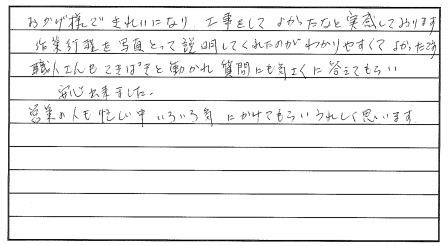 おかげ様できれいになり 工事をして よかったなと実感しております
作業行程を写真とって説明してくれたのがわかりやすくて よかったです
職人さんもてきぱきと働かれ 質問にも気さくに答えてもらい
安心出来ました.
営業の人も忙しい中 いろいろ気にかけてもらいうれしく思います